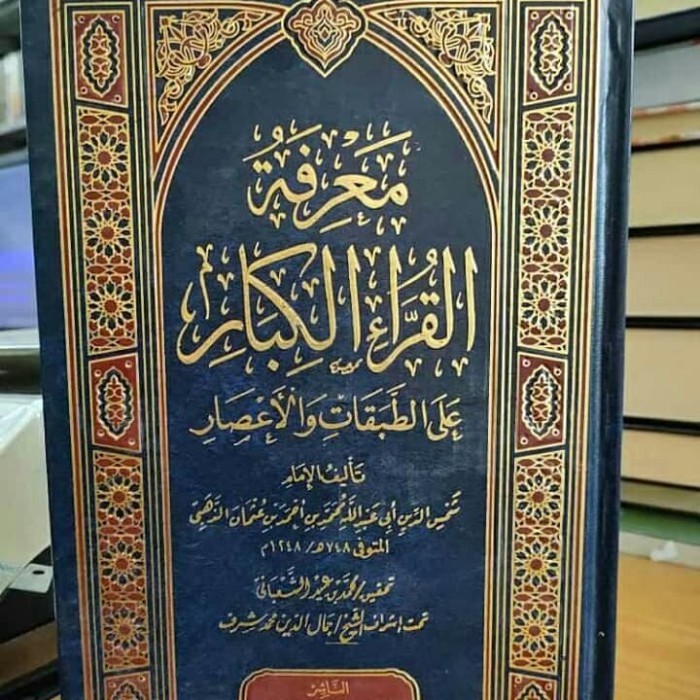 مَعْرِفَةُ
القُرَّاءِ الكِبَارِ
عَلَى الطَّبَقَاتِ وَالأَعْصَارِ
تأليف الإمام
شمس الدين أبي عبد الله محمد بن أحمد بن عثمان الذهبي
المتوفى ٧٤٨هـ / ١٢٤٨م
تحقيق / محمد بن عيد الشعباني
تحت إشراف الشيخ / جمال الدين محمد شرف
الناشر